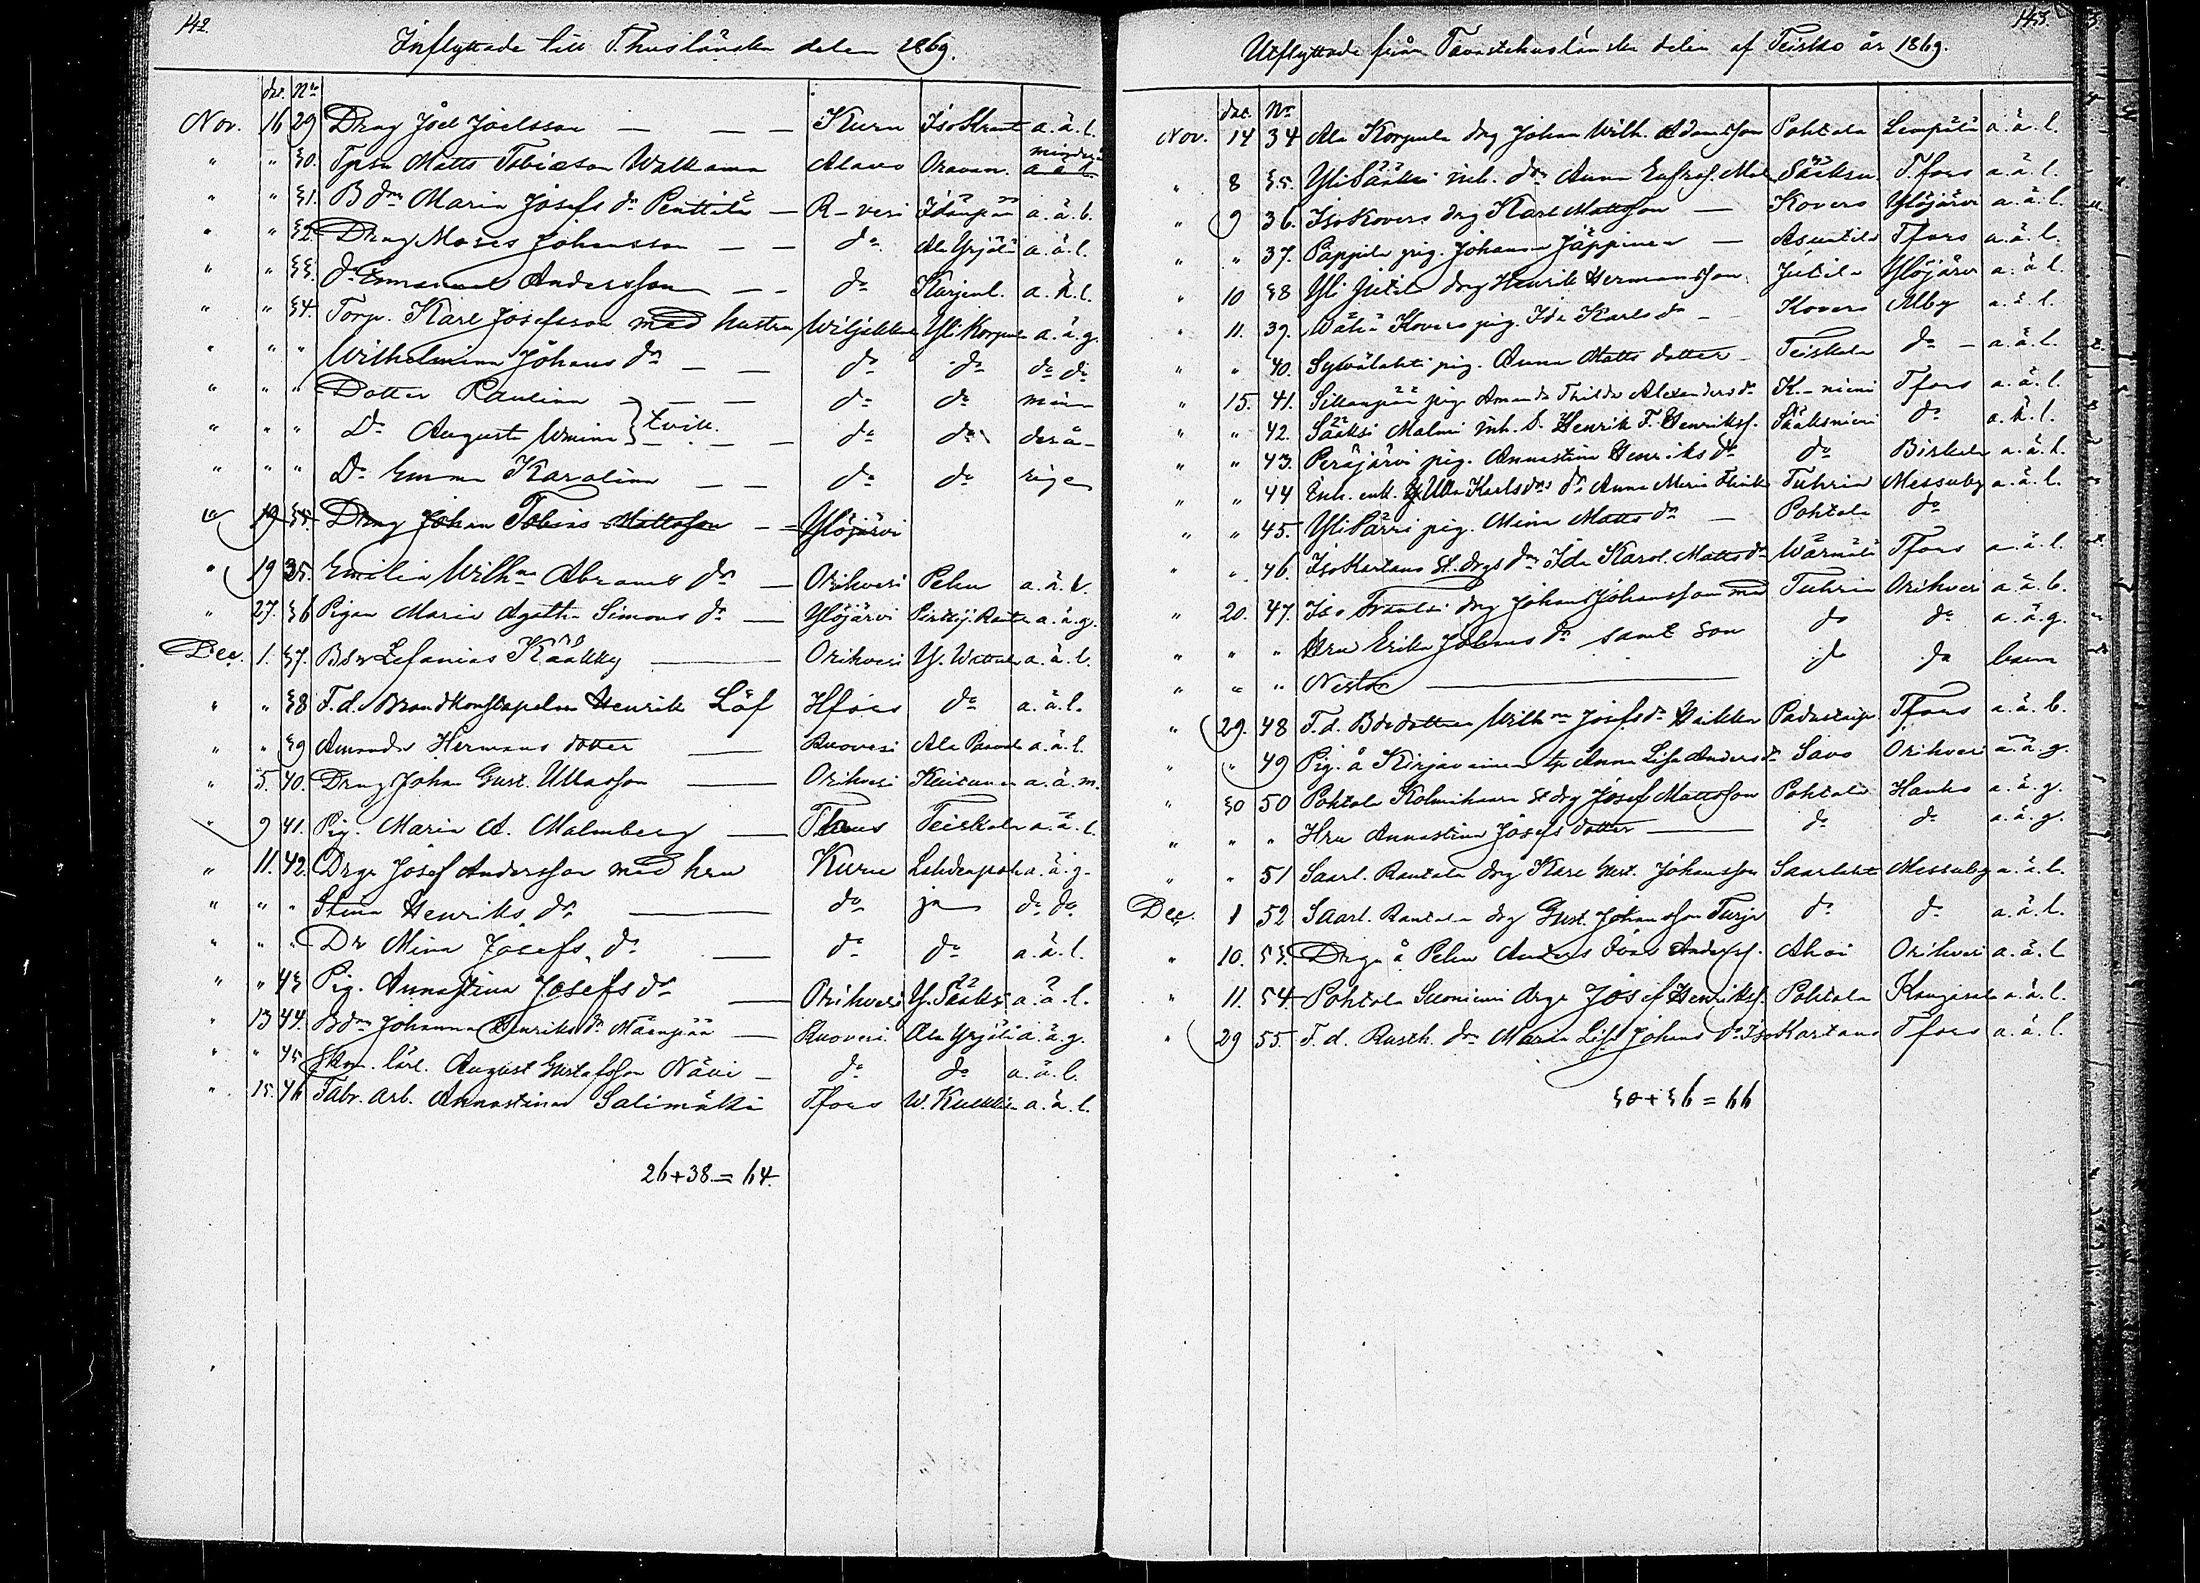 142.
Inflyttade till Thuslänska delen 1869.
dag. No
Nov. 16 29 Dräng Joel Joelsson — — — Kuru Iso Krant a.ä.l.
" " 30. Tpsn Matts Tobiæson Walkama Alavo Oravan. minderå a.ä.l.
" " 31. Bdn Maria Josefs dr Penttilä — R-vesi Idänpää a.ä.b.
" " 32. Dräng Moses Johansson — — do Ala Yrjölä a.ä.l.
" " 33. do Emanuel Andersson — — do Karjenl. a.ä.l.
" " 34. Torp. Karl Josefsson med hustru Wiljakkala Yli-Korpula a.ä.g.
" " " Wilhelmina Johans dr — — do do do do
" " " Dotter Paulina — — — do do min
" " " Dr Augusta Wmina } tvill. — — — do do derå-
" " " Dr Emma Karolina — — do do riga
" 19 35. Dräng Johan Tobias Mattsson — Ylöjärvi
" 19 35. Emilia Wilhna Abrams dr — Orihvesi Pehu a.ä.l.
" 27. 36 Pigan Maria Agatha Simons dr — Ylöjärvi a.ä.g.
Dec. 1. 37. Bdr Zefanias Kääkky — Orihvesi Y. Wattula a.ä.l.
" " 38 F.d. Brandkonstapeln Henrik Löf Hfors do a.ä.l.
" " 39 Amanda Hermans dotter — Ruovesi Ala Paavola a.ä.l.
" 5. 40. Dräng Johan Gust. Ullasson — Orihvesi a.ä.m.
" 9 41. Pig. Maria A. Malmberg — Thus Teiskola a.ä.l.
" 11. 42. Drgn Josef Andersson med hru Kuru a.ä.g.
" " " Stina Henriks dr — do ja do do
" " " Dr Mina Josefs dr — do do a.ä.l.
" " 43 Pig. Annastina Josefs dr — Orihvesi Y. Sääksi a.ä.l.
" 13 44. Bdn Johanna Henriks dr Mäenpää — Ruovesi. Ala Yrjölä a.ä.g.
" " 45 Skom. lärl. August Gustafsson Nävi — do do a.ä.l.
" 15. 46 Fabr. arb. Annastina Salimäki Tfors W. a.ä.l.
26+38 = 64.
143.
Utflyttade från Tavastehuslänska delen af Teisko år 1869.
dag. No
Nov. 14 34 Ala Korpula drg Johan Wilh. Adamsson Pohtola Lempäälä a.ä.l.
" 8 35. Yli Sääksi inh. dr Anna Eufros. Sääksn. T.fors a.ä.l.
" 9 36. Iso Kovero drg Karl Mattsson — Kovero Ylöjärvi a.ä.l.
" " 37. Pappila pig. Johanna Jäppinen — Asuntila Tfors a.ä.l.
" 10 38 Yli Jutila drg Henrik Hermansson Jutila Ylöjärv a.ä.l.
" 11. 39. Wähä Kovero pig. Ida Karls dr — Kovero Alby a.ä.l.
" " 40. Sywälahti pig. Anna Matts dotter — Teiskola do — a.ä.l.
" 15. 41. Sillanpää pig. Amanda Thilda Alexanders dr K.-niemi Tfors a.ä.l.
" " 42. Sääksi Malmi inh. S. Henrik F. Henrikss. Sääksniemi do a.ä.l.
" " 43. Peräjärvi pig. Annastina Henriks dr do Birkala a.ä.l.
" " 44 Enk. Ulla Karlsdrs dr Anna Maria Tuhria Messuby a.ä.l.
" " 45. Yli Särri pig. Mina Matts dr — Pohtola do
" " 46. Iso Kartano st. drgs dr Ida Karol. Matts dr Wärmälä Tfors a.ä.l.
" 20. 47. Iso drg Johan Johansson med Tuhria Orihvesi a.ä.b.
" " " Hru Erika Johans dr samt son do do a.ä.g.
" " " Nestor — do do barn
" 29. 48 F.d. Bdr dotter Wilhna Josefs dr Heikkil Padustaip. Tfors a.ä.b.
" " 49 Pig. å Kirjavainen tp Anna Lisa Anders dr Savo Orihvesi a.ä.g.
" 30 50 Pohtola Kolmihaara st drg Josef Mattsson Pohtola Hauho a.ä.g.
" " " Hru Annastina Josefs dotter — do do a.ä.g.
" " 51 Saarl. Rantala drg Karl Gust. Johansson Saarlaht Messuby a.ä.l.
Dec. 1 52 Saarl. Rantala drg Gust. Johansson Turja do do a.ä.l.
" 10. 53. Drgn å Pehu Anders Ivar Anderss. Ahoi Orihvesi a.ä.l
" 11. 54 Pohtola Suoniemi drgn Josef Henrikss. Pohtola Kangasala a.ä.l.
" 29 55. F.d. Rusth. dr Maria Lisa Johans dr Iso Kartano Tfors a.ä.l.
30+36 = 66